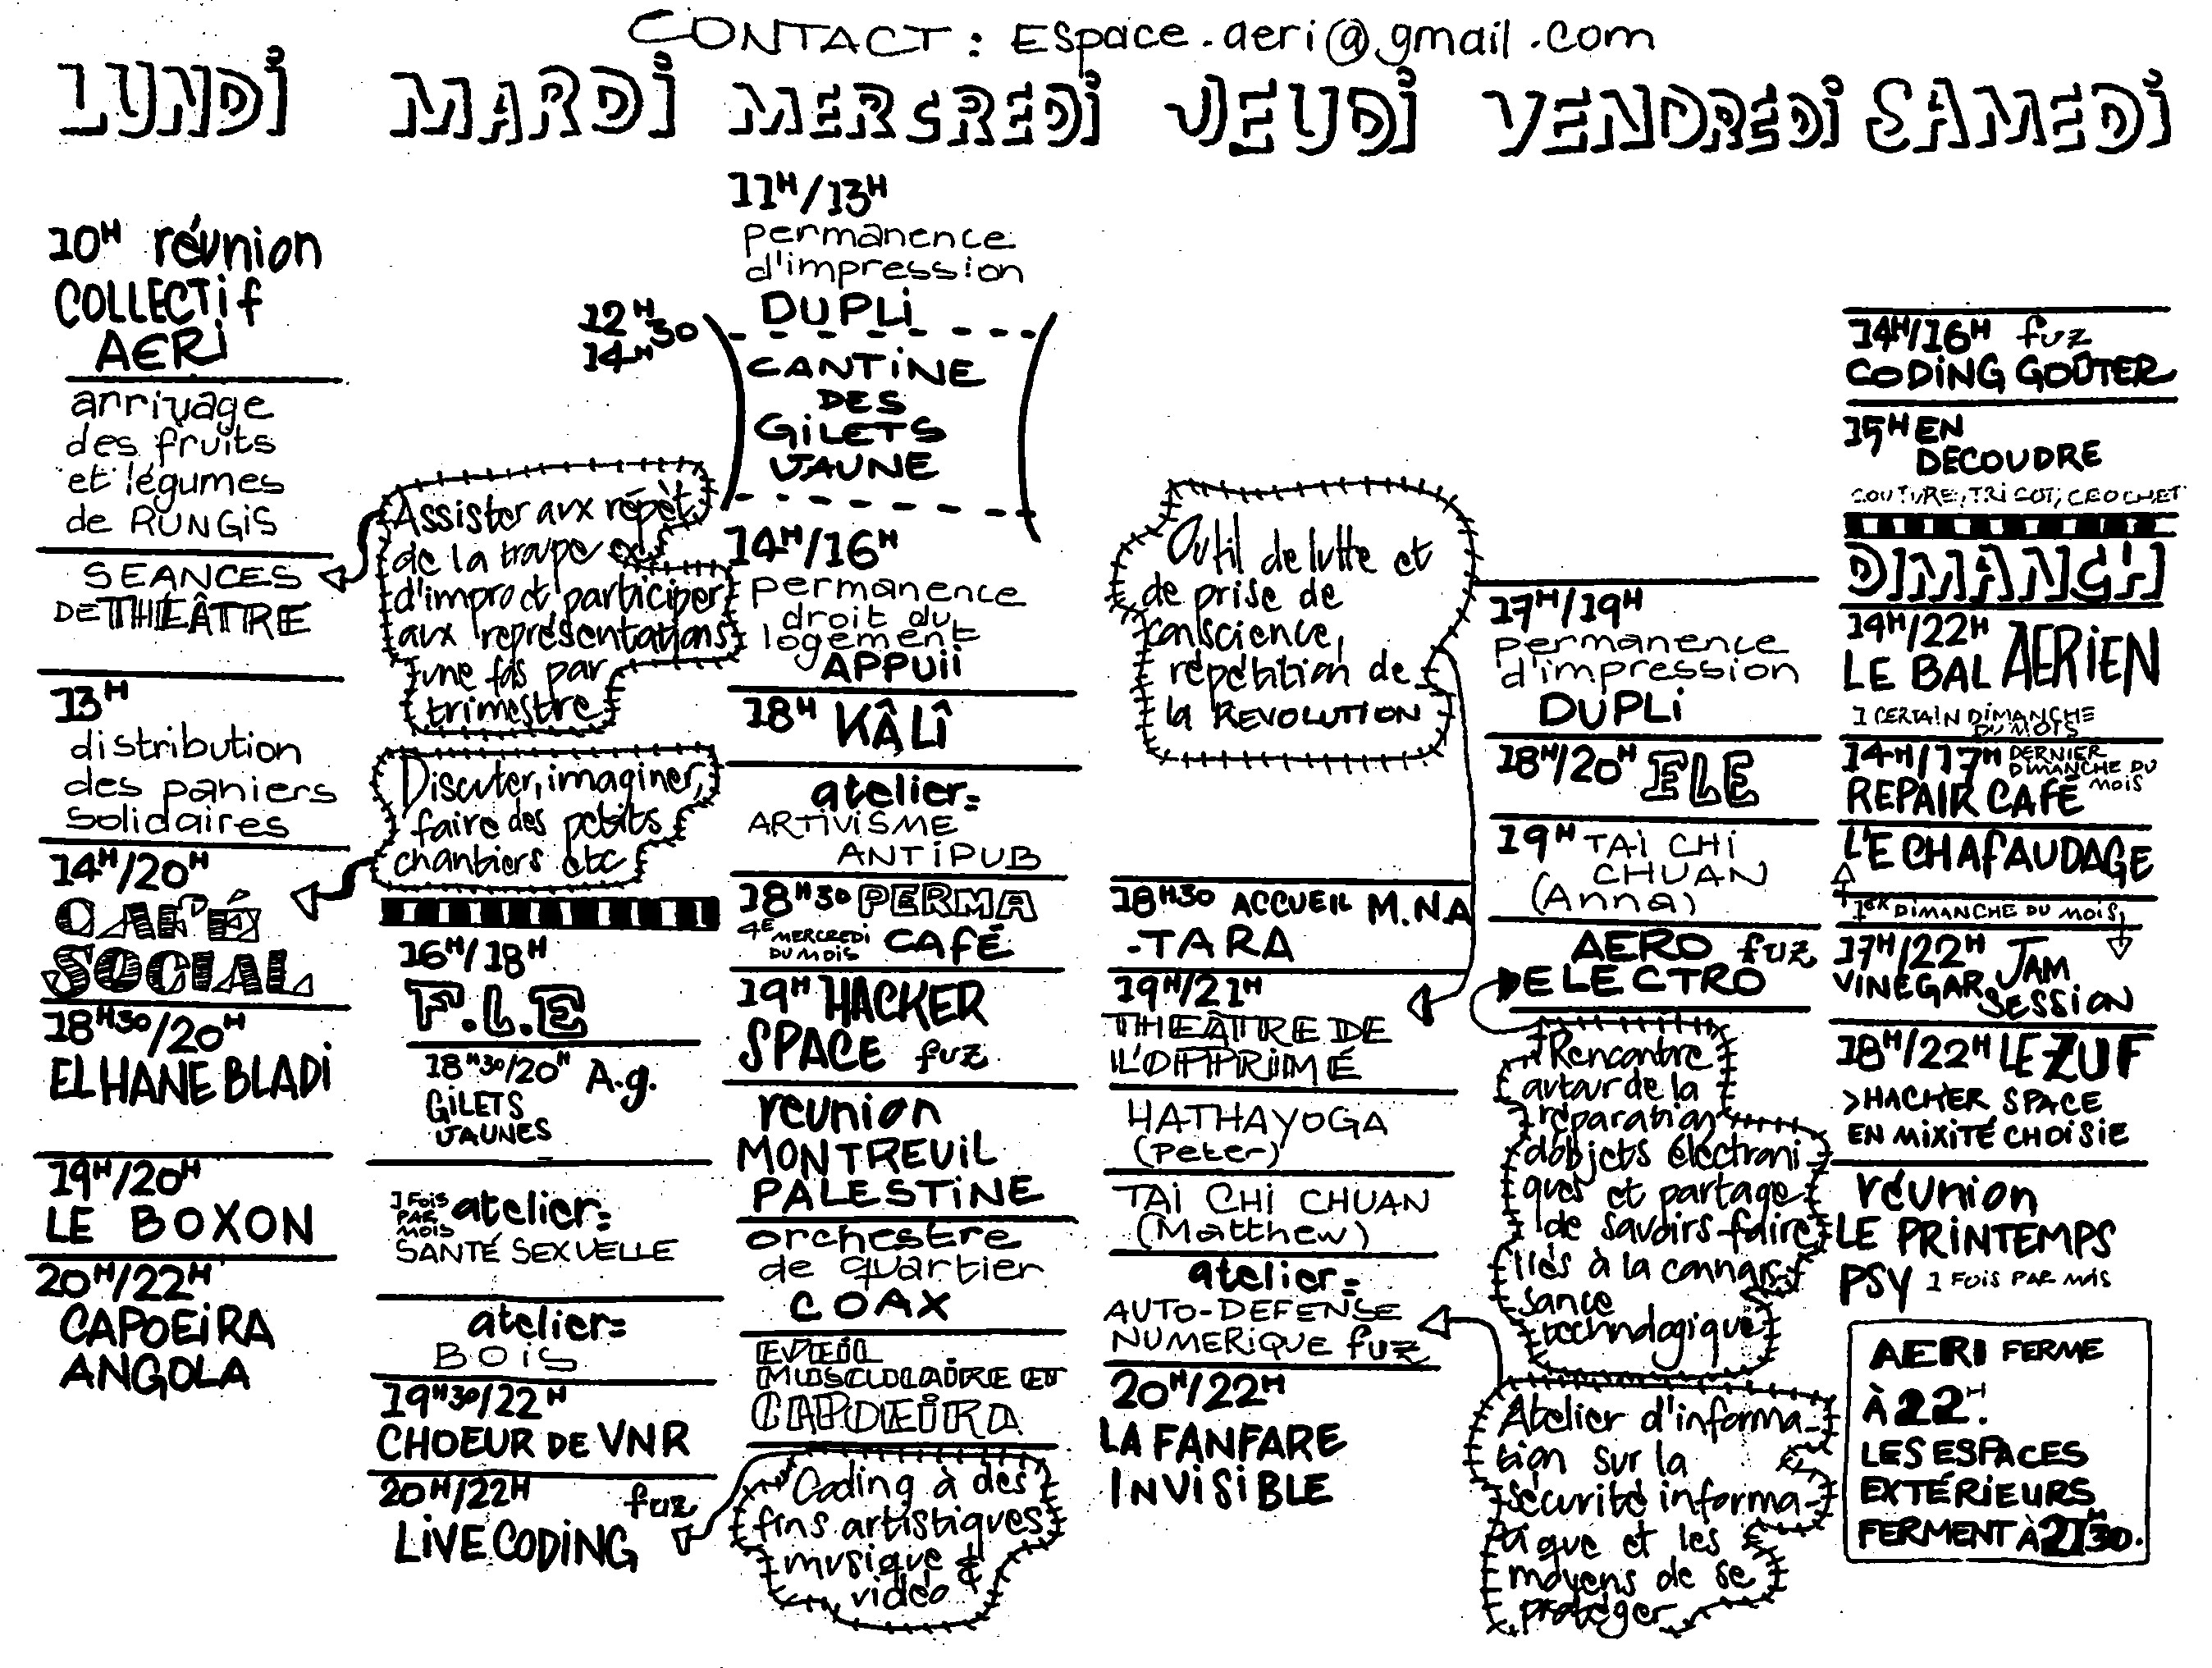 CONTACT : Espace.aeri@gmail.com
LUNDI
10H réunion
COLLECTIF
AERI
arrivage
des fruits
et légumes
de RUNGIS
SEANCES
DE THEÂTRE
13H
distribution
des paniers
solidaires
14H/20H
CAFÉ
SOCIAL
18H30/20H
EL HANE BLADI
19H/20H
LE BOXON
20H/22H
CAPOEIRA
ANGOLA
MARDI
Assister aux répèt.
de la troupe
d'impro et participer
aux représentations
une fois par
trimestre
Discuter, imaginer,
faire des petits
chantiers etc
16H/18H
F.L.E
18H30/20H A.g.
GILETS
JAUNES
1 FOIS
PAR
MOIS
atelier=
SANTÉ SEXUELLE
atelier=
BOIS
19H30/22H
CHOEUR DE VNR
20H/22H fuz
LIVE CODING
MERCREDI
11H/13H
permanence
d'impression
DUPLI
12H30
14H
CANTINE
DES
GILETS
JAUNE
14H/16H
permanence
droit du
logement
APPUII
18H KÂLÎ
atelier=
ARTIVISME
ANTIPUB
18H30 PERMA
4E MERCREDI
DU MOIS
CAFÉ
19H HACKER
SPACE fuz
reunion
MONTREUIL
PALESTINE
orchestre
de quartier
COAX
EVEIL
MUSCULAIRE ET
CAPOEIRA
Coding à des
fins artistiques
musique &
vidéo
JEUDI
Outil de lutte et
de prise de
conscience,
répétition de
la REVOLUTION
18H30 ACCUEIL M.NA
-TARA
19H/21H
THEÂTRE DE
L'OPPRIMÉ
HATHAYOGA
(Peter)
TAI CHI CHUAN
(Matthew)
atelier=
AUTO-DEFENSE
NUMERIQUE fuz
20H/22H
LA FANFARE
INVISIBLE
VENDREDI
17H/19H
permanence
d'impression
DUPLI
18H/20H FLE
19H TAI CHI
CHUAN
(Anna)
AERO fuz
ELECTRO
Rencontre
autour de la
réparation
d'objets électroni-
ques et partage
de savoirs faire
liés à la connais-
sance
technologique
Atelier d'informa-
tion sur la
sécurité informa-
tique et les
moyens de se
protéger
SAMEDI
14H/16H fuz
CODING GOÛTER
15H EN
DECOUDRE
COUTURE, TRICOT, CROCHET
DIMANCH
14H/22H
LE BAL AERIEN
1 CERTAIN DIMANCHE
DU MOIS
14H/17H DERNIER
DIMANCHE DU
MOIS
REPAIR CAFÉ
L'ECHAFAUDAGE
1ER DIMANCHE DU MOIS
17H/22H JAM
VINEGAR SESSION
18H/22H LE ZUF
>HACKER SPACE
EN MIXITÉ CHOISIE
réunion
LE PRINTEMPS
PSY 1 FOIS PAR MOIS
AERI FERME
À 22H.
LES ESPACES
EXTÉRIEURS
FERMENT À 21H30.